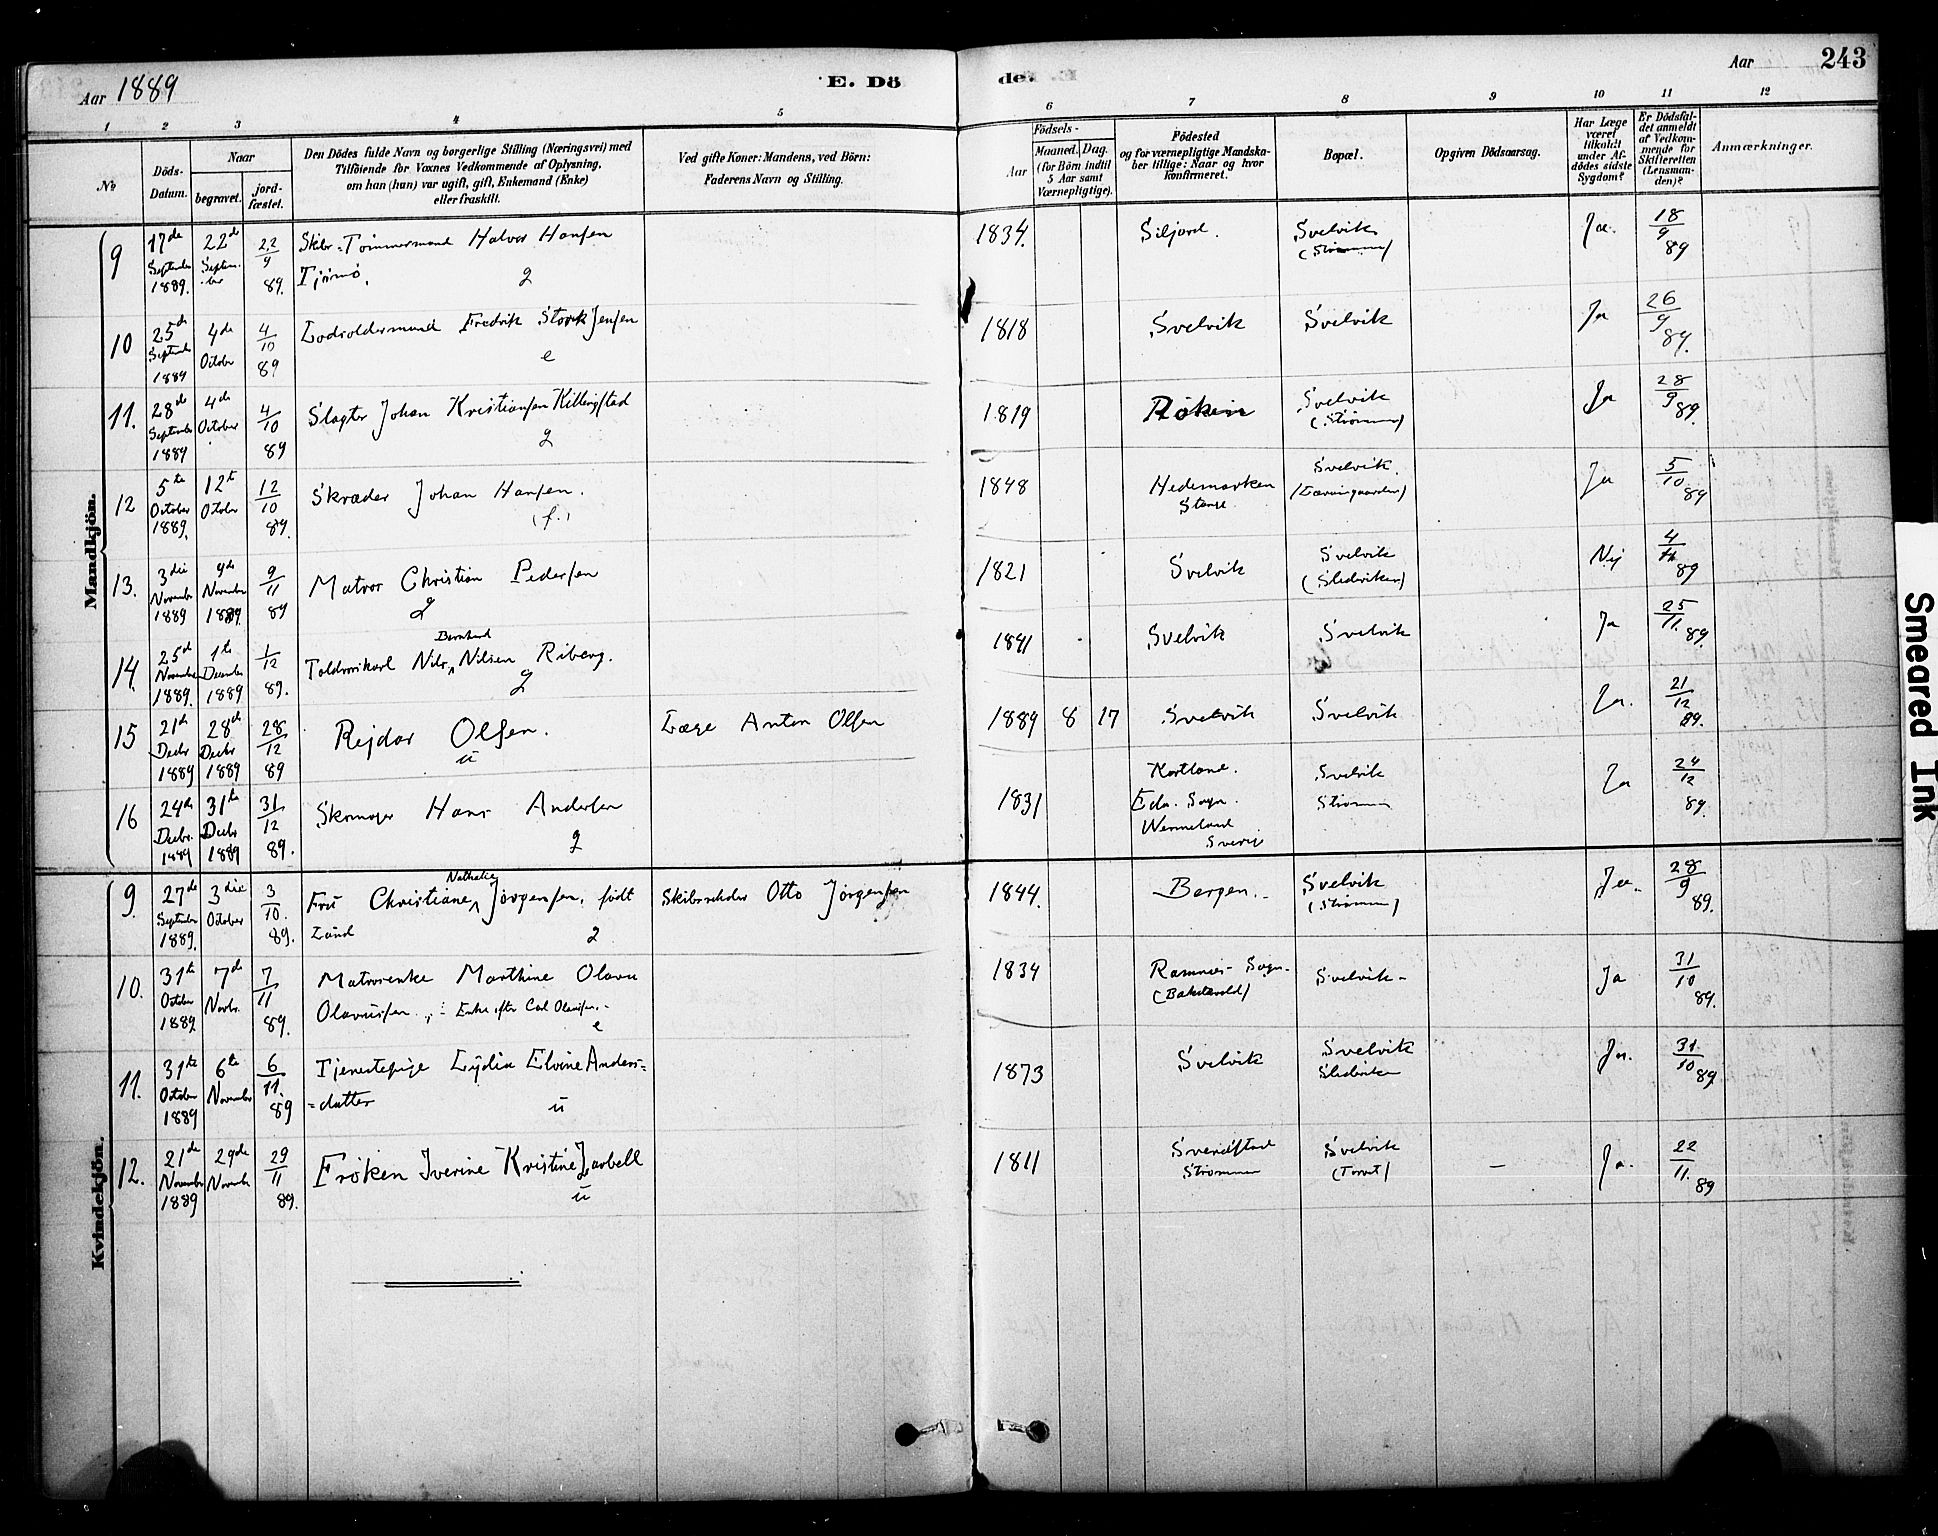 Aar 1889
E. Döde.
Aar
243
1 2 3 4 5 6 7 8 9 10 11 12
№
Döds-Datum.
Naar
begravet.
jordfæstet.
Den Dödes fulde Navn og borgerlige Stilling (Næringsvei) med
Tilföiende for Voxnes Vedkommende af Oplysning,
om han (hun) var ugift, gift, Enkemand (Enke)
eller fraskilt.
Ved gifte Koner: Mandens, ved Börn:
Faderens Navn og Stilling.
Födsels-
Aar
Maaned. Dag.
(for Börn indtil
5 Aar samt
Værnepligtige).
Födested
og for værnepligtige Mandskaber tillige: Naar og hvor
konfirmeret.
Bopæl.
Opgiven Dödsaarsag.
Har Læge
været
tilkaldt
under Afdödes sidste
Sygdom?
Er Dödsfaldet anmeldt
af Vedkommende for
Skifteretten
(Lensmanden)?
Anmærkninger.
Mandkjön.
9 17de September 1889. 22de September 22/9 89. Skibs-Tömmermand Halvor Hansen
Tjömö. g
1834. Siljord. Svelvik (Strömmen) Ja. 18/9 89
10 25de September 1889 4de October 4/10 89 Lodsoldermand Fredrik Stork Jensen
e
1818 Svelvik Svelvik Ja 26/9 89.
11. 28de September 1889 4de October 4/10 89 Slagter Johan Kristiansen Killingstad
g
1819 Röken Svelvik (Strömmen) Ja 28/9 89.
12 5te October 1889. 12te October 12/10 89. Skræder Johan Hansen.
(f.)
1848 Hedemarken Stange Svelvik. Ja 5/10 89
13. 3die November 1889 9de November 1889. 9/11 89 Matros Christian Pedersen
g
1821 Svelvik Svelvik (Sledviken) Nej 4/11 89
14. 25de November 1889. 1te December 1889 1/12 89. Toldroskarl Nils Bernhard Nilsen Riberg.
g
1841 Svelvik Svelvik Ja 25/11. 89.
15 21de Decbr 1889 28de Decbr 1889 28/12 89 Rejdar Olsen.
u
Læge Anton Olsen
1889 8 17 Svelvik Svelvik Ja. 21/12 89.
16 24de Decbr. 1889 31te Decbr 1889 31/12 89. Skomager Hans Andersen
g
1831 Eda. Sogn. Wermeland Sverige Svelvik Strömmen Ja 24/12 89.
Kvindekjön.
9. 27de September 1889. 3die October 3/10. 89. Fru Christiane Nathalie Jörgensen, född
Lund g
Skibsreder Otto Jörgensen
1844. Bergen. Svelvik (Strömmen) Ja. 28/9 89.
10. 31te October 1889 7de Novbr. 7/11 89. Matrosenke Marthine Olava
Olavussen, : Enke efter Carl Olavussen.
e
1834 Ramnes Sogn. Svelvik Ja 31/10 89.
11. 31te October 1889 6te November 6/11. 89 Tjenestepige Lydia Elvine Anders=
=datter u
1873 Svelvik Svelvik Sledviken Ja. 31/10 89
12. 21de November 1889 29de November 29/11 89. Fröken Iverine Kristine Zarbell
u
1811 Svendstad Strömmen Svelvik (Torvet) – Ja. 22/11. 89
Smeared Ink